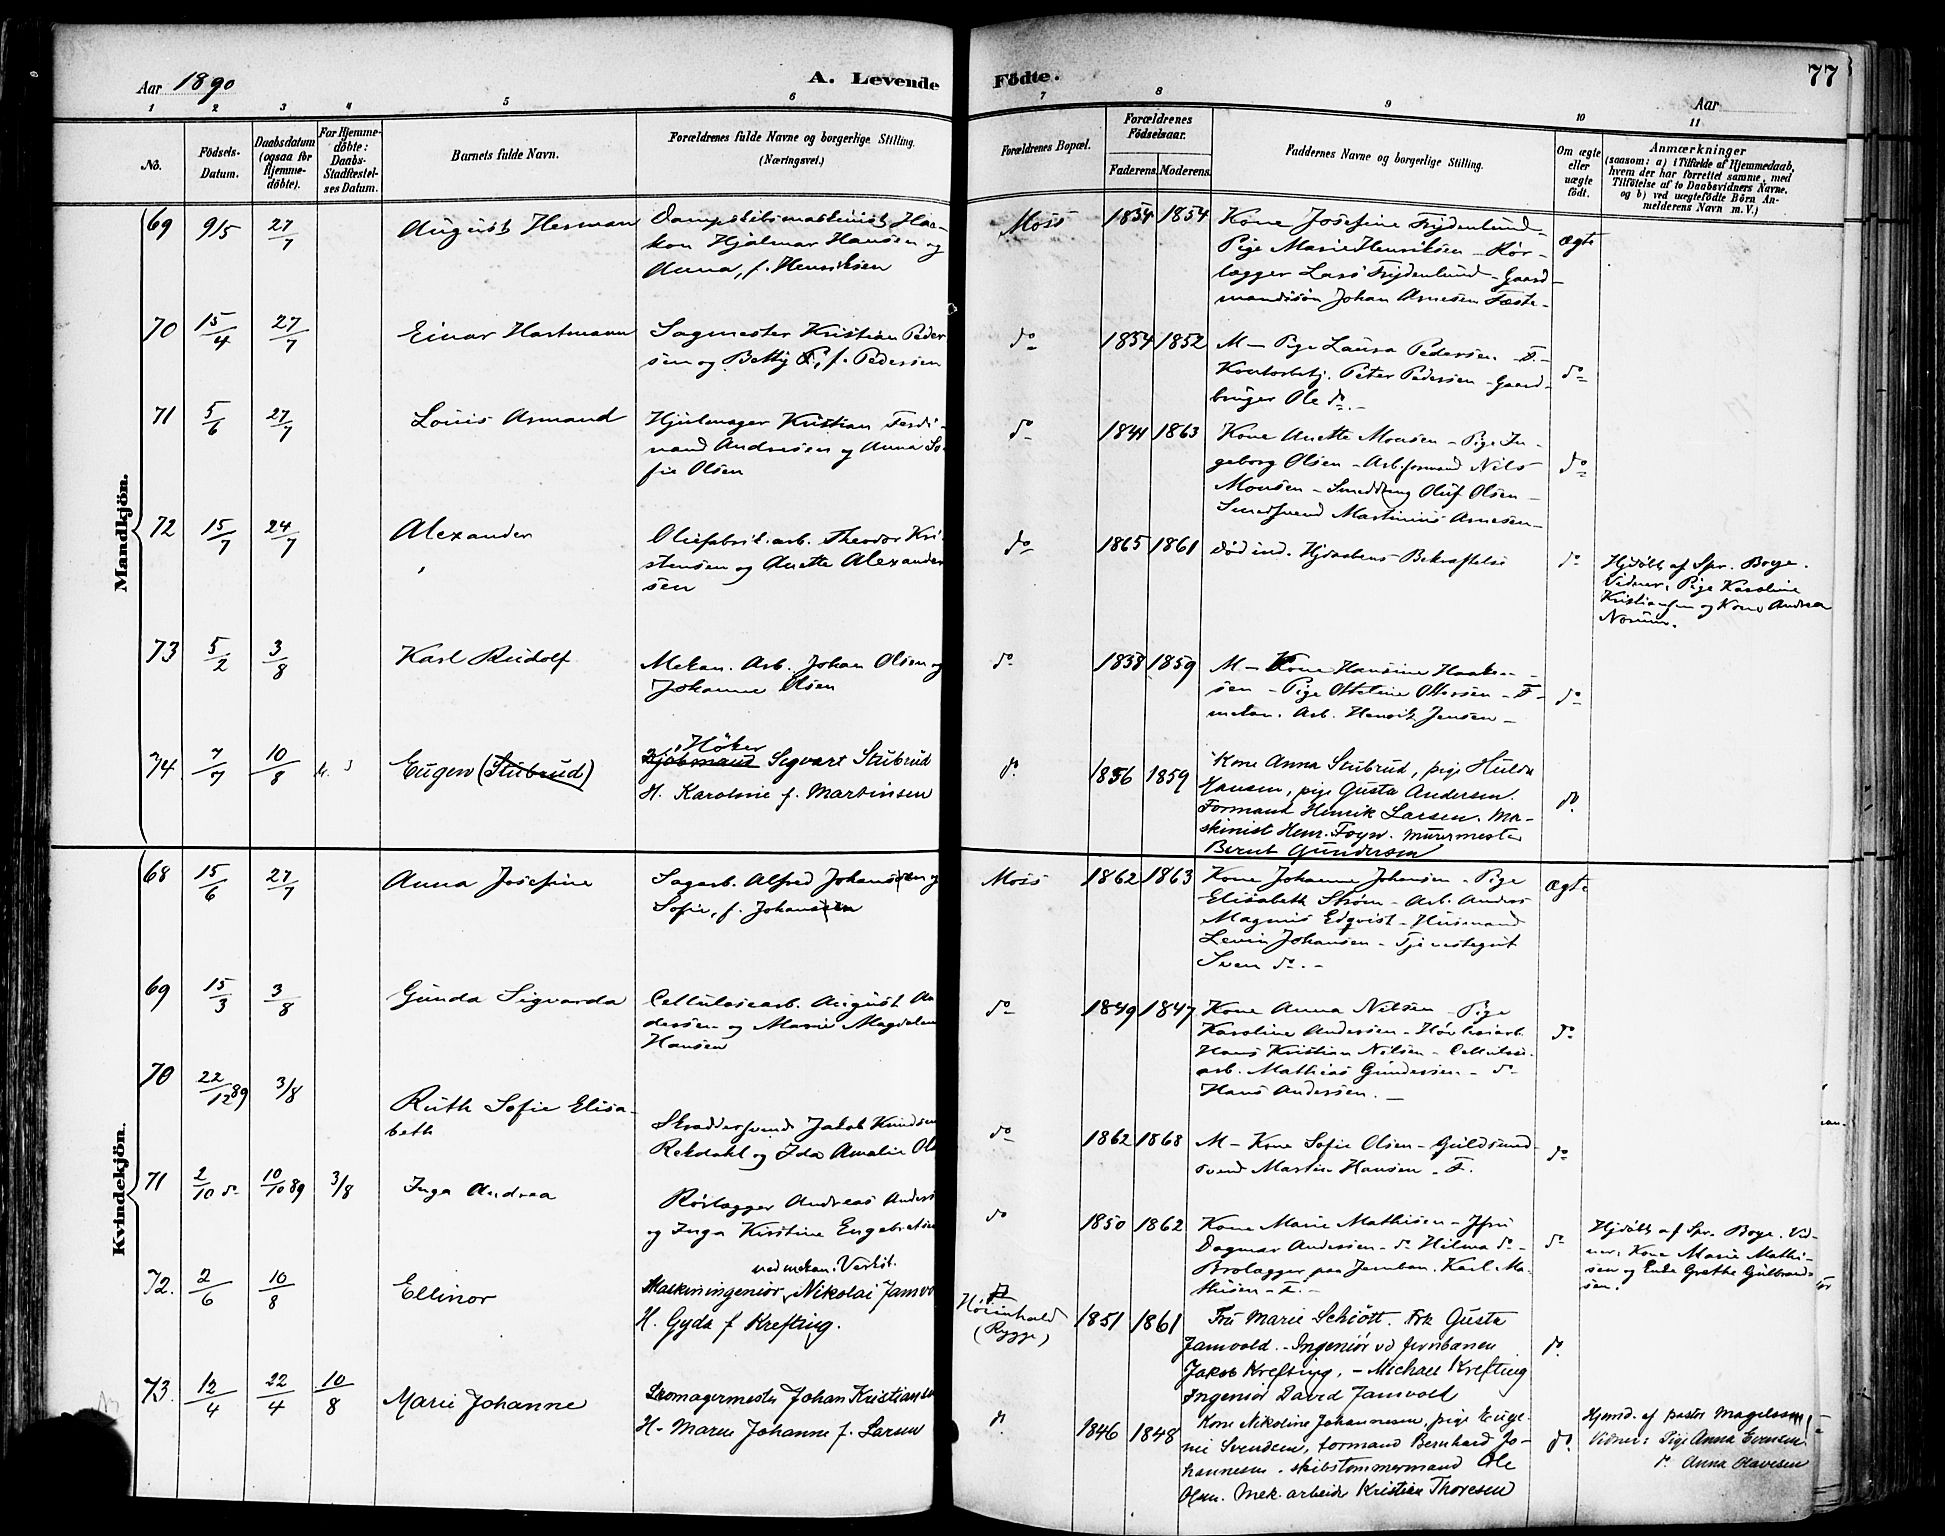 Aar 1890
A. Levende Födte.
77
Aar
1 2 3 4 5 6 7 8 9 10 11
No.
Födsels-
Datum.
Daabsdatum
(ogsaa for
Hjemme-
döbte).
For Hjemme-
döbte:
Daabs-
Stadfæstel-
ses Datum.
Barnets fulde Navn.
Forældrenes fulde Navne og borgerlige Stilling.
(Næringsvei.)
Forældrenes Bopæl.
Forældrenes
Födselsaar.
Faderens. Moderens.
Faddernes Navne og borgerlige Stilling.
Om ægte
eller
uægte
födt.
Anmærkninger
(saasom: a) i Tilfælde af Hjemmedaab,
hvem der har forrettet samme, med
Tilföielse af to Daabsvidners Navne.
og b) ved uægtefödte Börn An-
melderens Navn m.V.)
Mandkjön.
69 9/5 27/7 August Herman
Dampskibsmaskinist Haa-
kon Hjalmar Hansen og
Anna, f. Henriksen
Moss 1854 1854
Kone Josefine Frydenlund -
Pige Marie Henriksen - Rør-
lægger Lars Frydenlund - Gaard-
mandssøn Johan Arnesen Fæste-
ægte
70 15/4 27/7 Einar Hartmann
Sagmester Kristian Peder
sen og Betty P., f. Pedersen
do 1854 1852
M - Pige Laura Pedersen - F. -
Kontorbetj. Peter Pedersen - Gaard-
bruger Ole do. -
do
71 5/6 27/7 Louis Armand
Hjulmager Kristian Ferdi-
nand Andersen og Anna So-
fie Olsen
do 1841 1863
Kone Anette Monsen - Pige In-
geborg Olsen - Arb.formand Nils
Monsen - Smeddreng Oluf Olsen -
Smedsvend Martinius Arnesen -
do
72 15/7 24/7 Alexander
Oliefabrik.arb. Theodor Kri
stensen og Anette Alexander
sen
do 1865 1861
død ind. Hjdaabens Bekræftelse
do
Hjdøbt af Spr. Boye.
Vidner: Pige Karoline
Kristiansen og Kone Andrea
Norum.
73 5/2 3/8 Karl Rudolf
Mekan. Arb. Johan Olsen og
Johanne Olsen
do 1838 1859
M - Kone Hansine Haak-
sen - Pige Otteline Ottersen - F -
mekan. Arb. Henrik Jensen -
do
74 7/7 10/8 Eugen (Stubrud)
Høker
Kjøbmand Sigvart Stubrud
H. Karoline f. Martinsen
do. 1856 1859
Kone Anna Stubrud, pige Hulda
Hansen, pige Gusta Andersen.
Formand Henrik Larsen. Ma-
skinist Henr. Foyn. Murermester
Bernt Gundersen
do.
Kvindekjön.
68 15/6 27/7 Anna Josefine
Sagarb. Alfred Johansen og
Sofie, f. Johansen
Moss 1862 1863
Kone Johanne Johansen - Pige
Elisabeth Strøm - Arb. Anders
Magnus Edqvist - Husmand
Levin Johansen - Tjenestegut
Sven do. -
ægte
69 15/3 3/8 Gunda Sigvarda
Cellulosearb. August An
dersen og Marie Magdalene
Hansen
do 1849 1847
Kone Anna Nilsen - Pige
Karoline Andersen - Høvleriarb.
Hans Kristian Nilsen - Cellulose-
arb. Mathias Gundersen - do
Hans Andersen. -
do
70 22/12 89 3/8 Ruth Sofie Elisa-
beth
Skræddersvend Jakob Knudsen
Rekdahl og Ida Amalie Ol
do 1862 1868
M - Kone Sofie Olsen - Guldsmed
svend Martin Hansen - F.
do
71 2/10 do 10/10 89 3/8 Inga Andrea
Rørlægger Andreas Anders
og Inga Kristine Engebretsen
do 1850 1862
Kone Marie Mathisen - Jfru
Dagmar Andersen - do Hilma do -
Brolægger paa Jernban. Karl Ma-
thisen - F. -
do
Hjdøbt af Spr. Boye. Vid-
ner: Kone Marie Mathi-
sen og Enke Grethe Gulbrand-
sen.
72. 2/6 10/8 Ellinor
ved mekan. Verkst.
Maskiningeniør Nikolai Jamvo
H. Gyda f Krefting.
Høienhald
(Rygge)
1851 1861
Fru Marie Schiött. Frk Gusta
Jamvold. - Ingeniør vd Jernbanen
Jakob Krefting. - Michael Krefting
Ingeniør David Jamvold
do.
73. 12/4 22/4 10/8 Marie Johanne
Skomagermester Johan Kristianse
H. Marie Johanne f. Larsen
do. 1846 1848
Kone Nikoline Johannesen, pige Euge-
nie Svendsen, formand Bernhard Jo-
hannesen. skibstømmermand Ole
Olsen. Mek. arbeider Kristian Thoresen
do.
Hjemd. af pastor Magelssen
Vidner: Pige Anna Evensen
do. Anna Olavesen